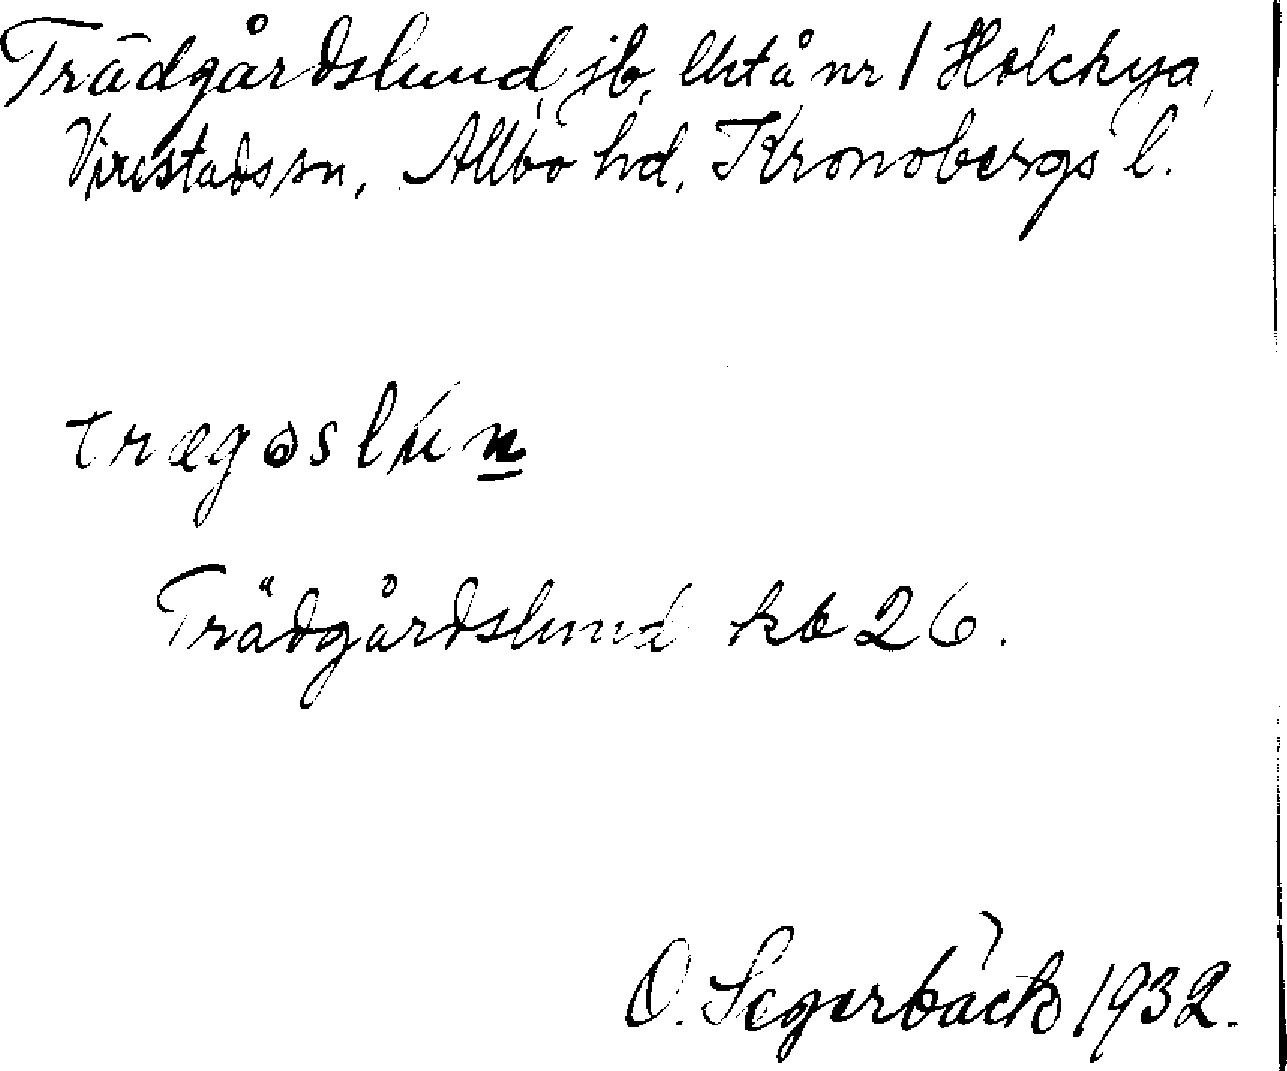 Trädgårdslund, jb, Uvtå nr 1 Holckya,
Virestads sn, Allbo hd, Kronobergs l.
trægəslún
Trädgårdslund kb 26.
O. Segerbäck 1932.